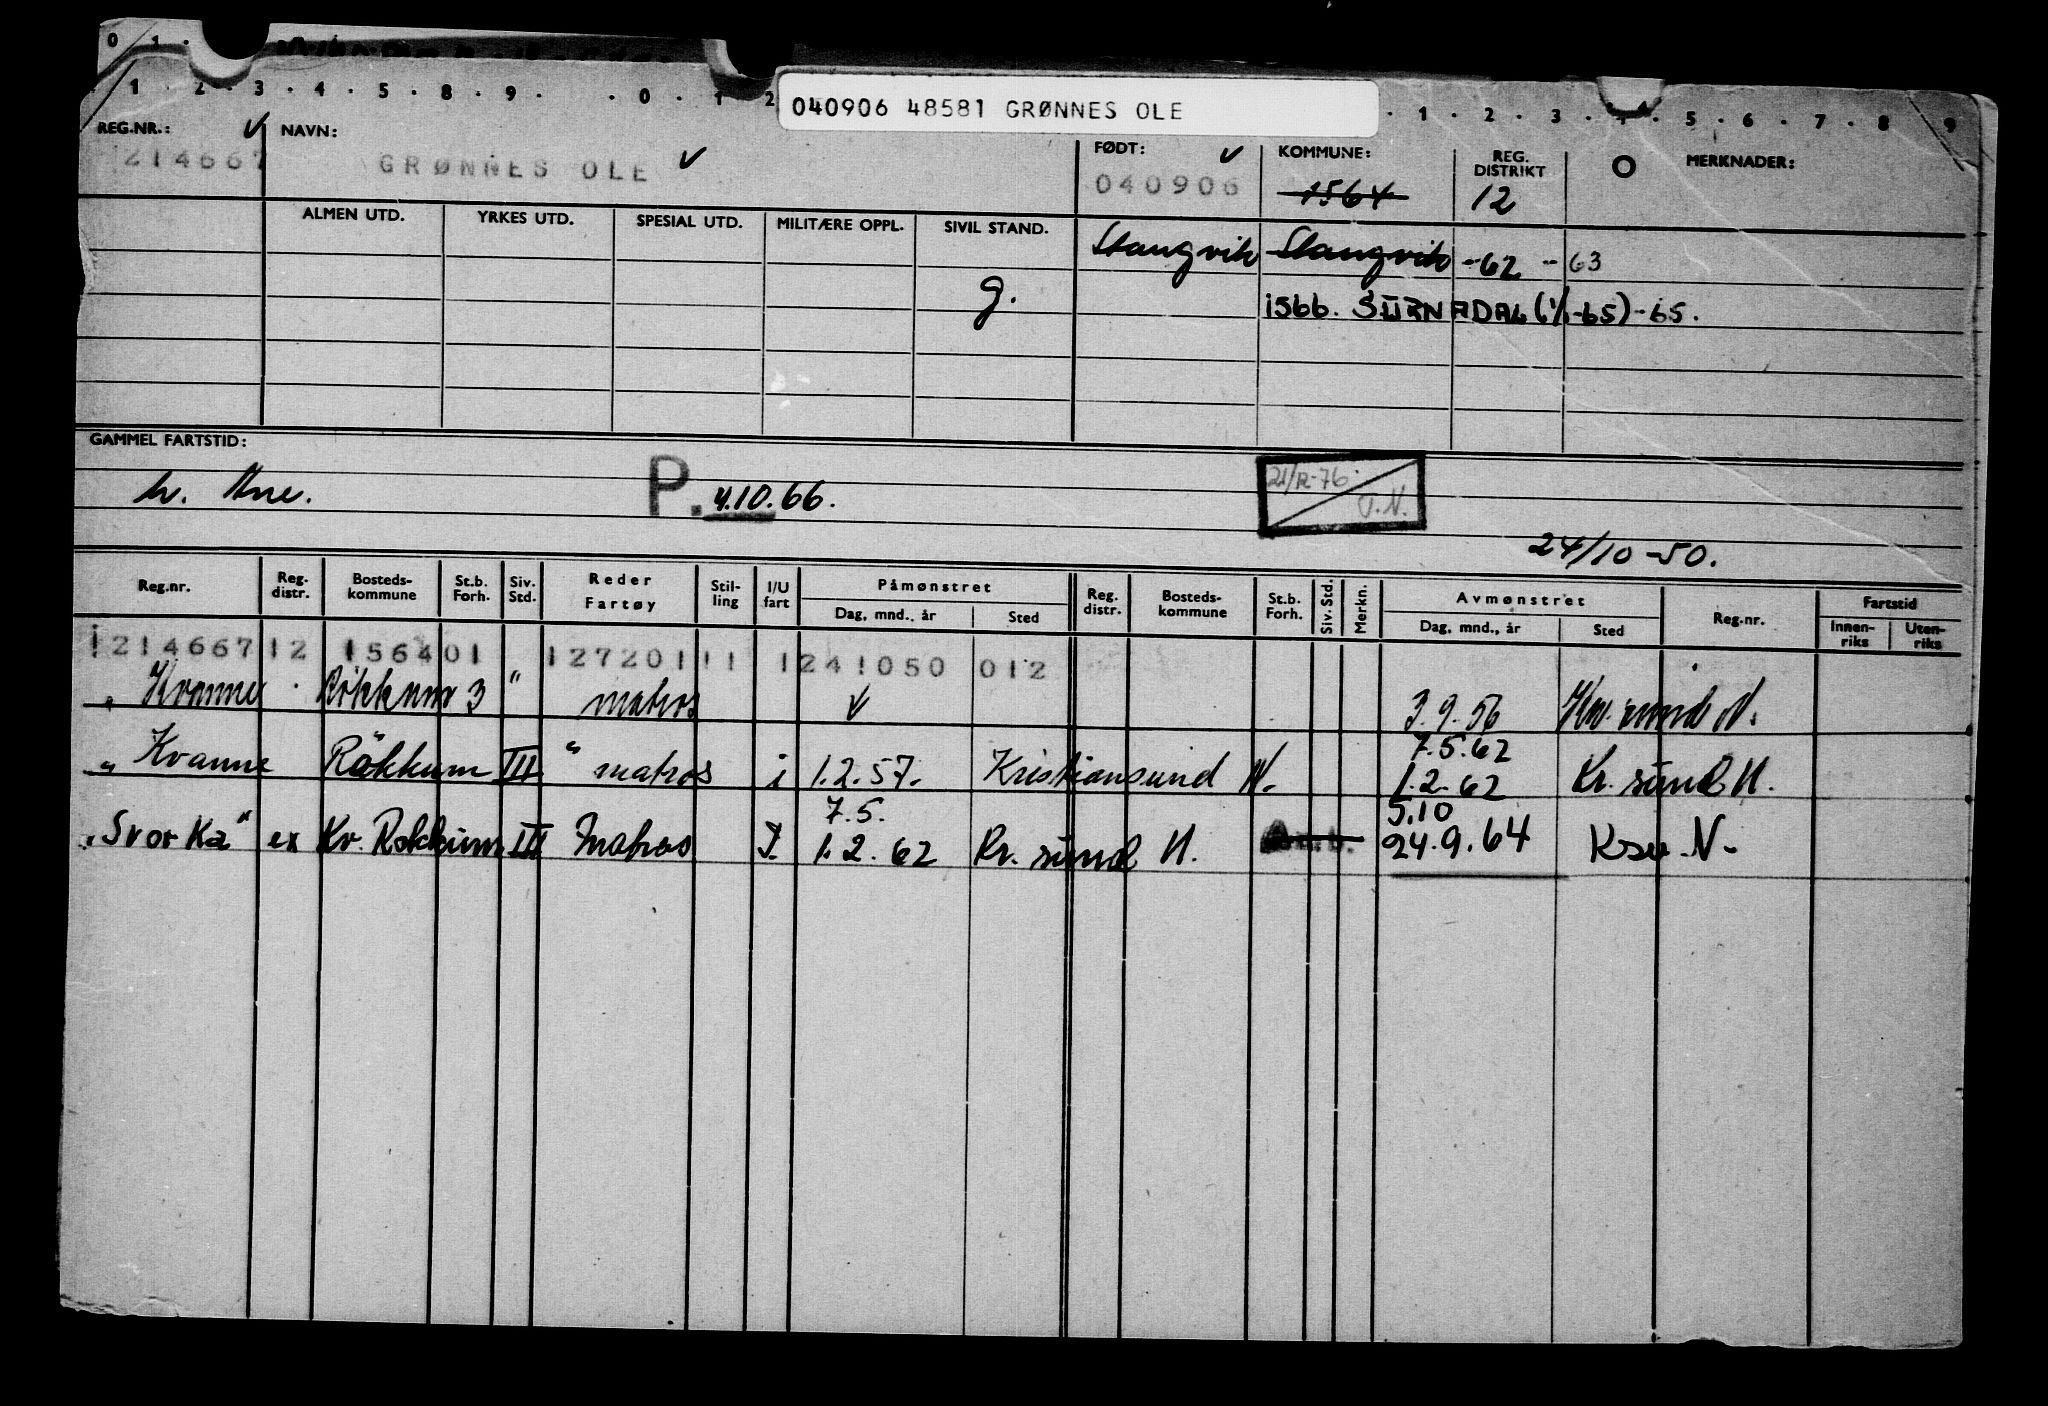 0 1 .
1 . 2 . 3 . 4 . 5 . 8 . 9 . . 0 . 1 2 . 1 . 2 . 3 . 4 . 5 . 6 . 7 . 8 9
040906 48581 GRØNNES OLE
REG.NR.: NAVN: FØDT: KOMMUNE: REG. DISTRIKT MERKNADER:
214667 GRØNNES OLE 040906 1564 12
ALMEN UTD. YRKES UTD. SPESIAL UTD. MILITÆRE OPPL. SIVIL STAND.
Stangvik Stangvik -62 -63
g. 1566. SURNADAL (1/1-65) -65.
GAMMEL FARTSTID:
P. 4.10.66. 21/12-76 T.N.
24/10-50.
Reg.nr. Reg. distr. Bosteds-kommune St.b. Forh. Siv. Std. Reder Fartøy Stil-ling I/U fart Påmønstret Dag, mnd., år Sted Reg. distr. Bosteds-kommune St.b. Forh. Siv. Std. Merkn. Avmønstret Dag, mnd., år Sted Reg.nr. Fartstid Innen-riks Uten-riks
1214667 12 156401 127201 11 1 241050 012
„Kvanne Røkkum 3 " matros 3.9.56 Kr. sund N.
7.5.62
„Kvanne Røkkum III " matros i 1.2.57. Kristiansund N. 1.2.62 Kr. sund N.
7.5. 5.10
„Svorka" ex Kv. Røkkum III Matros I. 1.2.62 Kr. sund N. 24.9.64 Ksu. N.